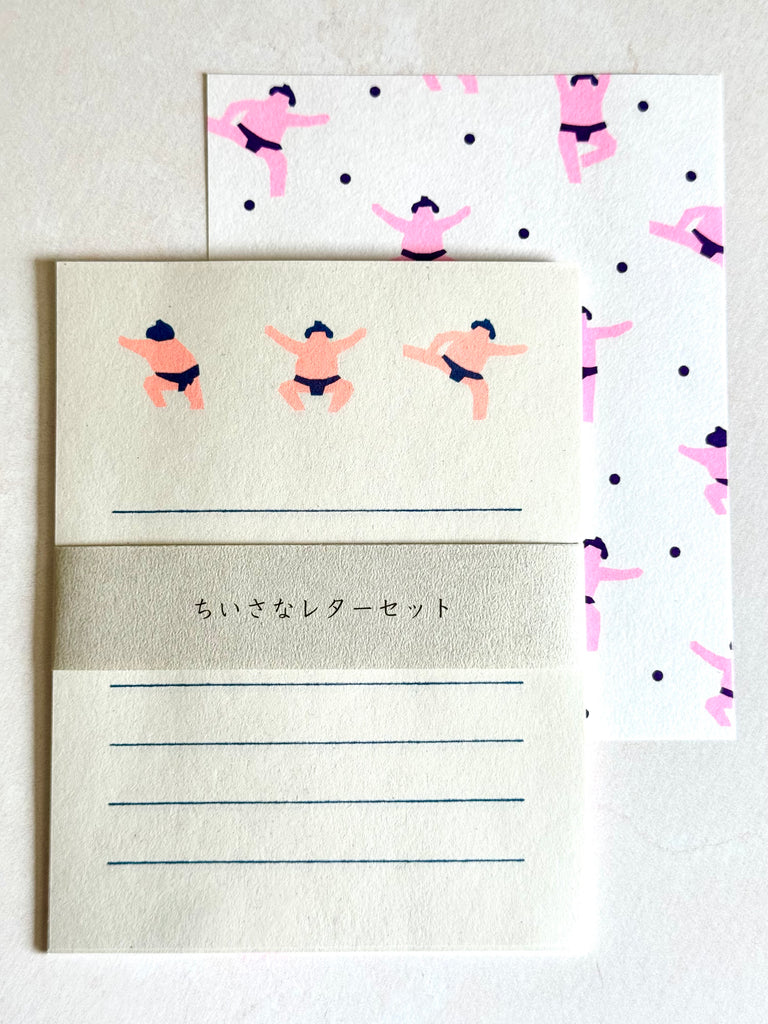 ちいさなレターセット